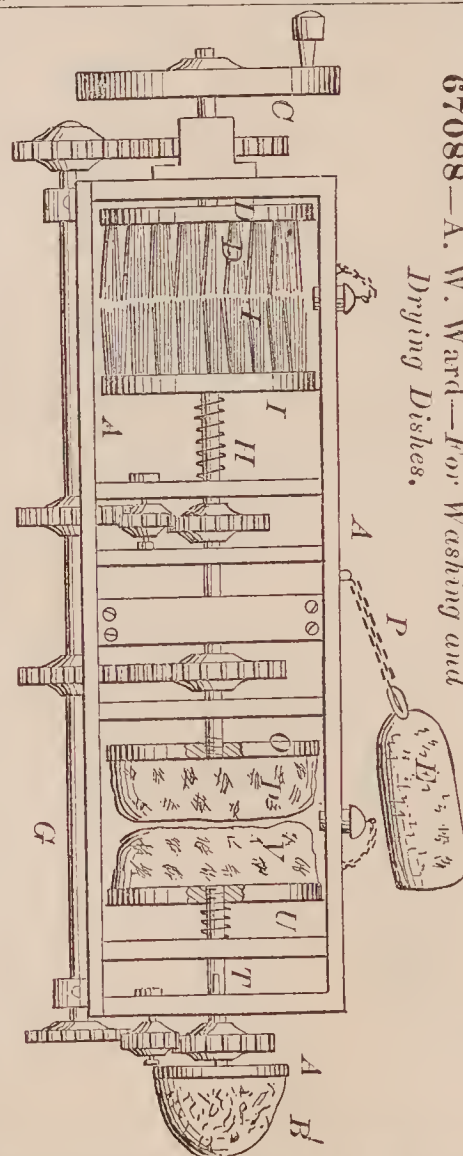 67088—A. W. Ward—For Washing and
Drying Dishes.
C
D
I
A
H
A
P
E
O
V
U
G
T
A
B'